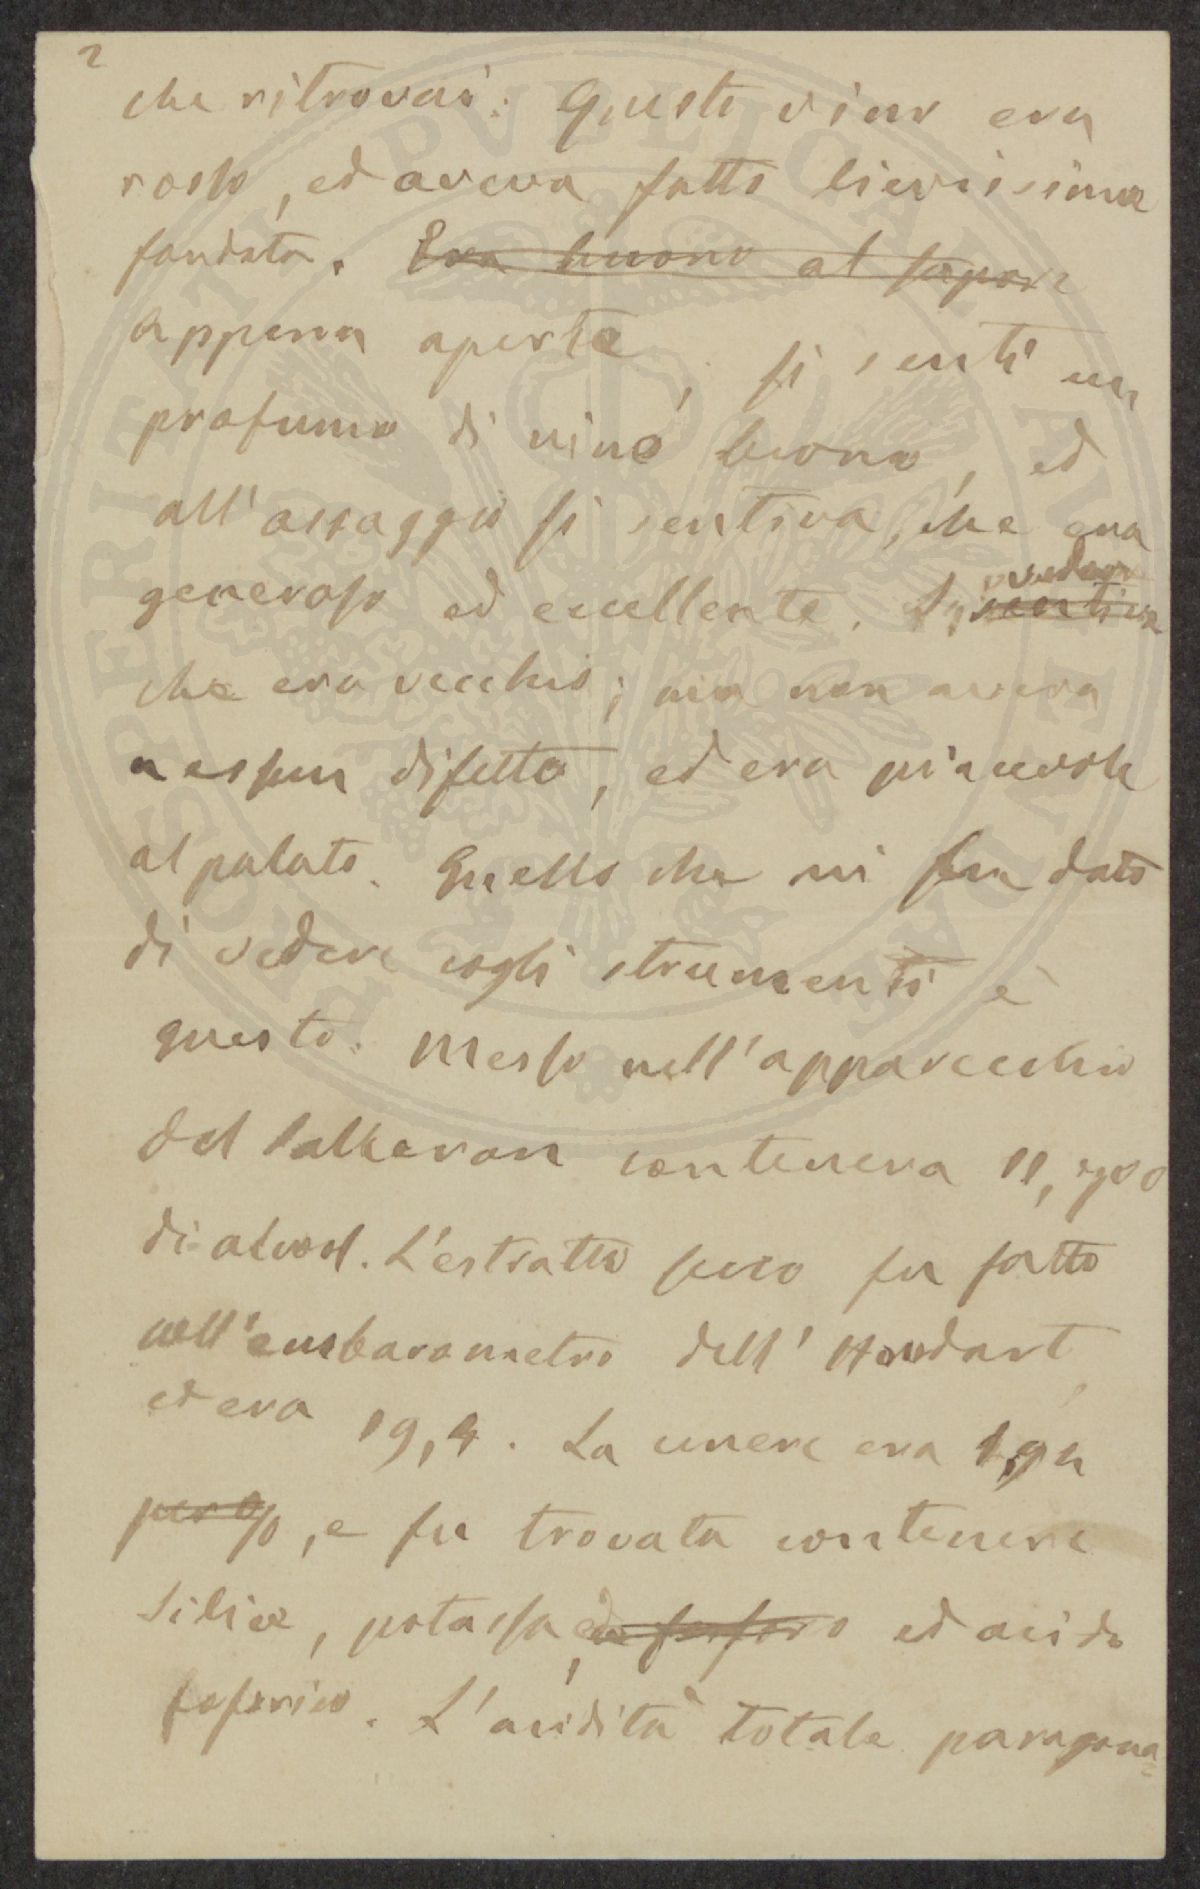 2
che ritrovai. Questo vino era
rosso, ed aveva fatto lievissima
fondata. Era buono al sapore
appena aperto, si sentì un
profumo di vino buono, ed
all'assaggio si sentiva, che era
generoso ed eccellente. Si sentiva vedeva
che era vecchio; ma non aveva
nessun difetto, ed era piacevole
al palato. Quello che mi fu dato
di vedere cogli strumenti è
questo. Messo nell'apparecchio
del Salleron conteneva 11,
di alcool. L'estratto secco fu fatto
nell'enobarometro dell' Houdart,
ed era 19,4. La cenere era
per %, e fu trovata contenere
silice, potassa, ed fosforo ed acido
fosforico. L'acidità totale paragona=
PROSPERITATI PVBLICAE AVGENDAE